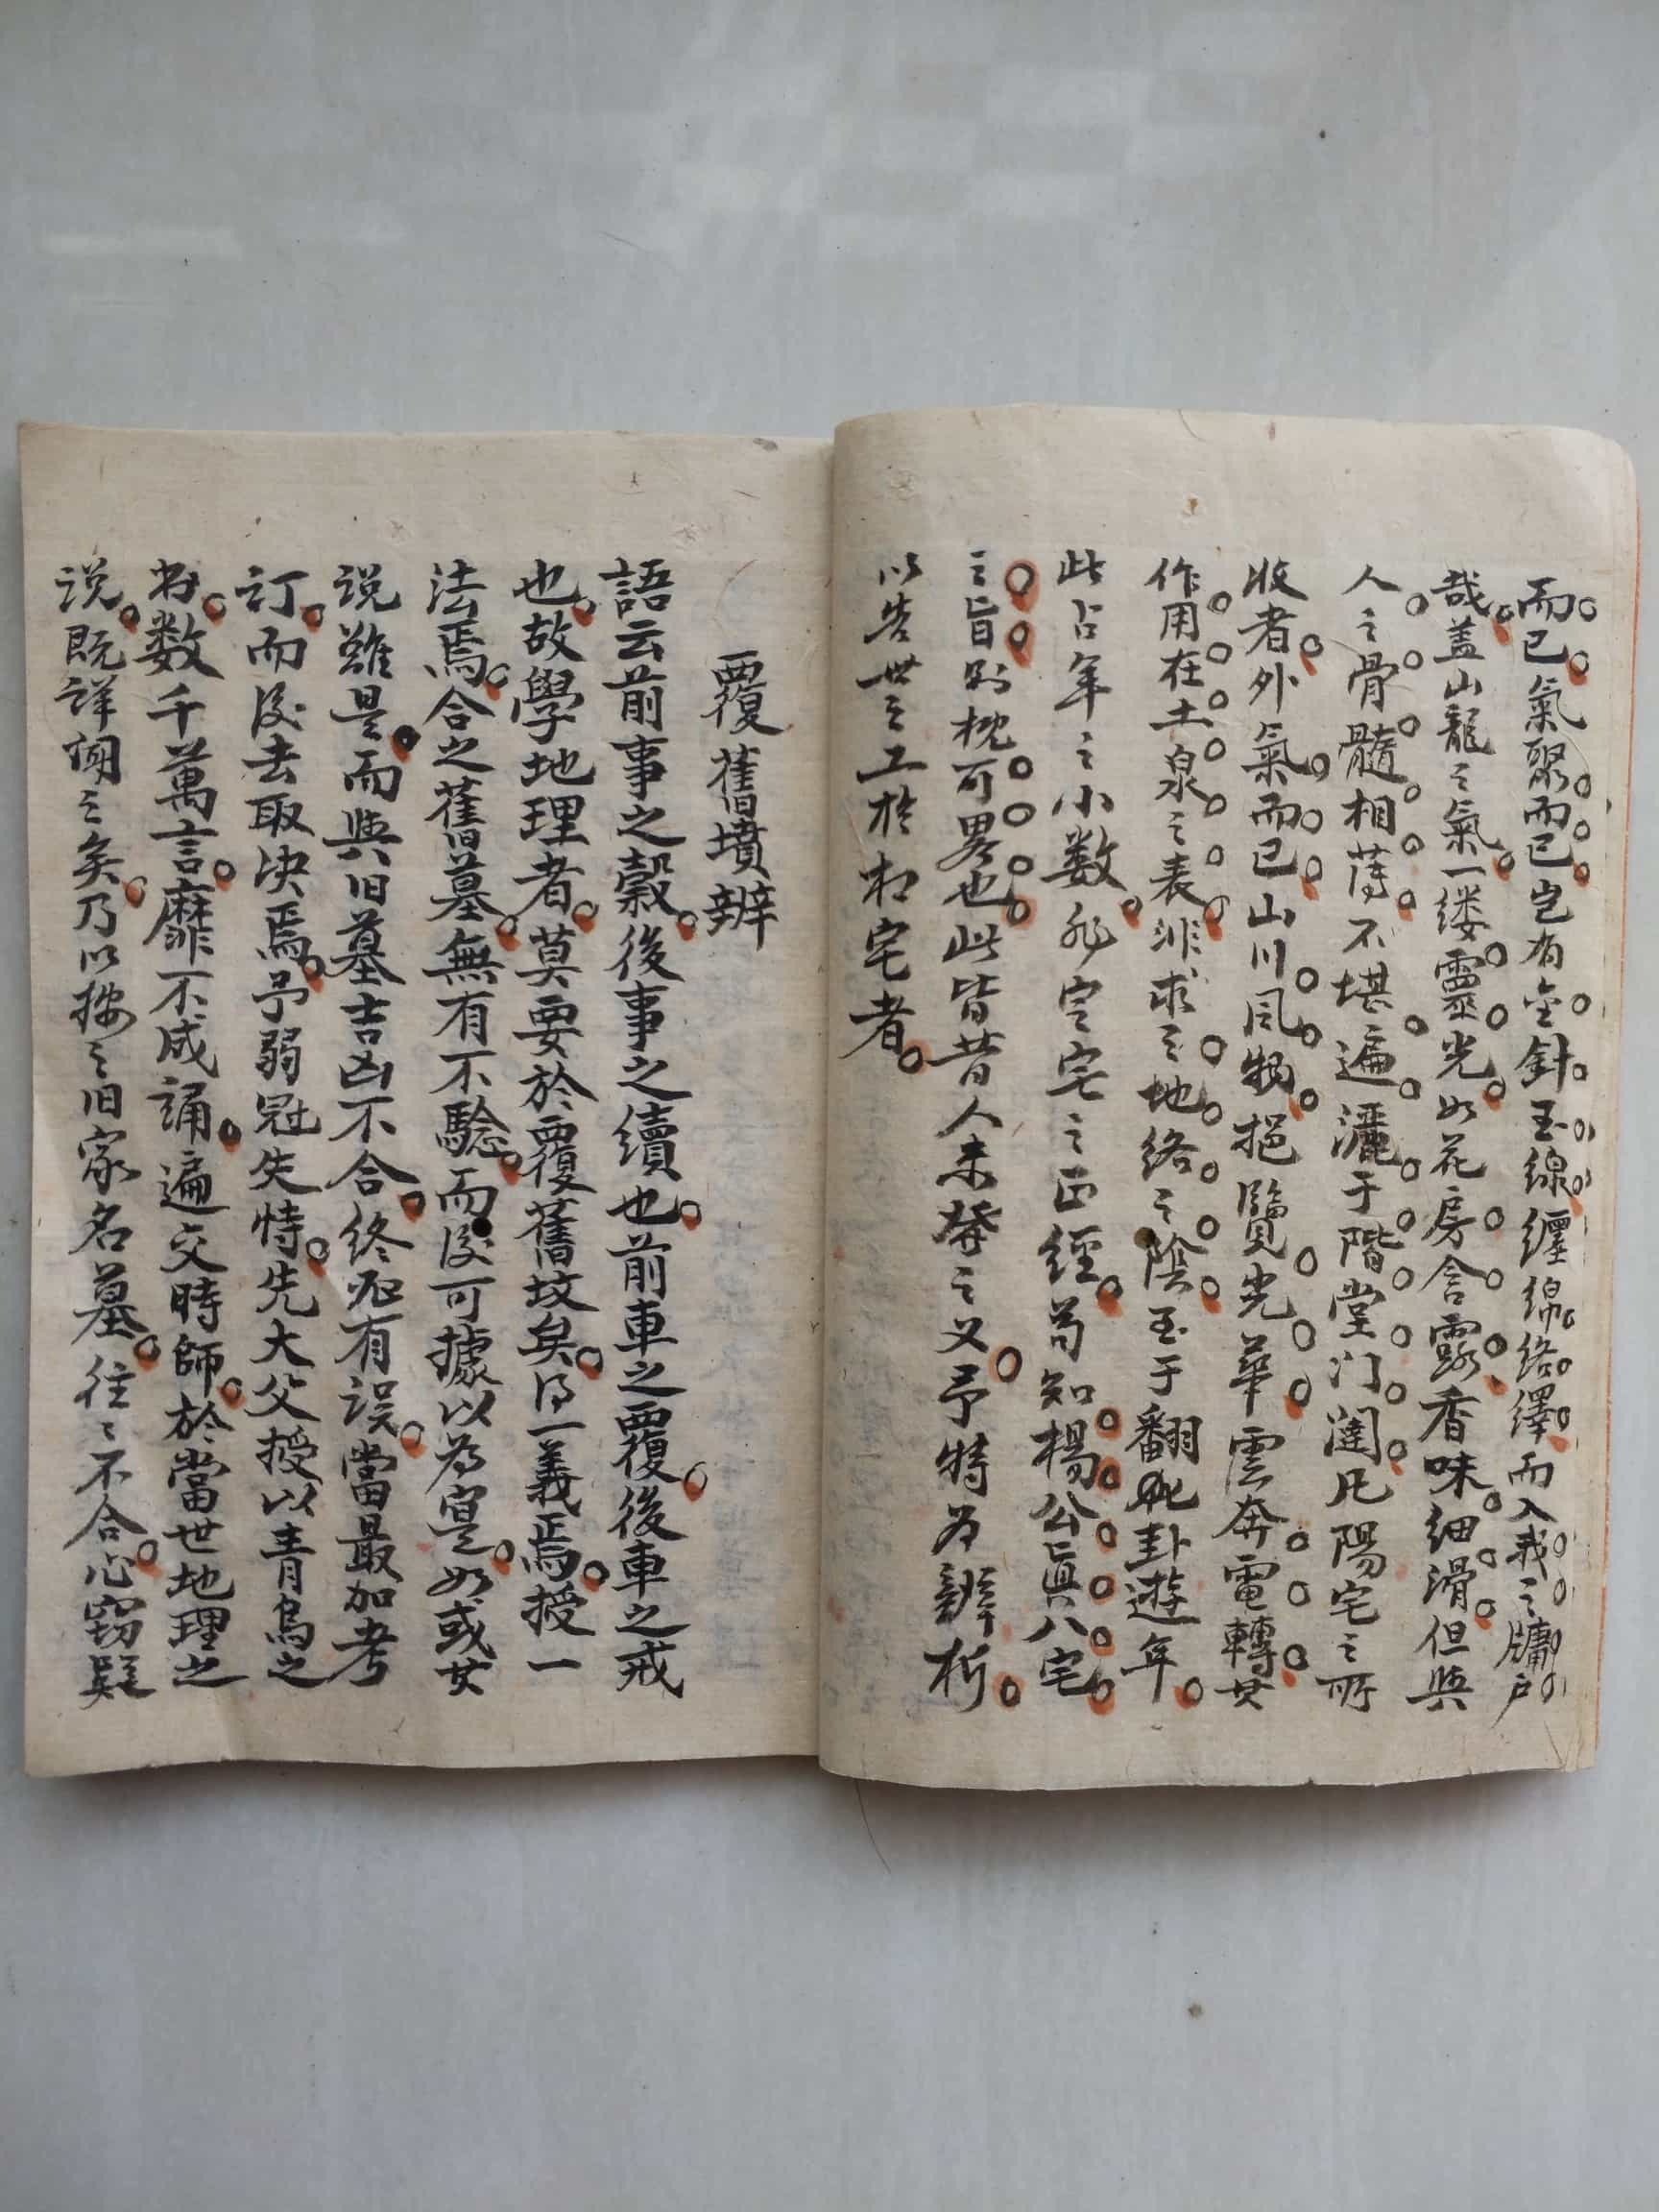 而已氣聚而已岂有金針玉線纏綿络繹而入我之牖户
哉盖山龍之氣一缕靈光如花房含露香味细滑但與
人之骨髓相薄不堪遍灑于階堂门闥凡陽宅之所
收者外氣而已山川風物挹覽光華雲奔電轉其
作用在土泉之表非求之地络之陰至于翻卦遊年
此占年之小数非定宅之正經苟知楊公真八宅
之旨則概可畧也此皆昔人未發之义予特为辨析
以告世之工於相宅者
覆舊墳辨
語云前事之轂後事之續也前車之覆後車之戒
也故學地理者莫要於覆舊坟矣得一義焉授一
法焉合之舊墓無有不驗而後可據以為寔如或其
说雖是而與旧墓吉凶不合终必有误當最加考
訂而後去取决焉予弱冠失恃先大父授以青烏之
书数千萬言靡不成誦遍交時師於當世地理之
说既詳闻之矣乃以按之旧家名墓往々不合心窃疑